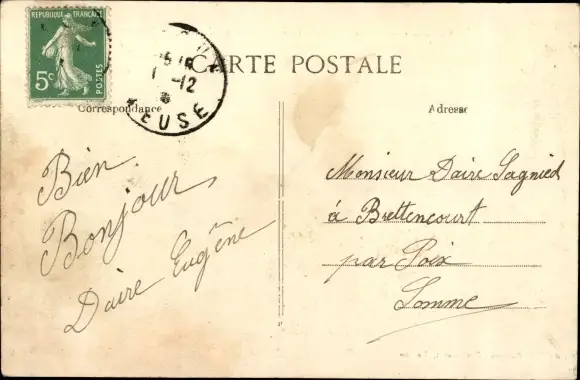 REPUBLIQUE FRANÇAISE
5c
POSTES
12
EUSE
CARTE POSTALE
Correspondance
Adresse
Bien
Bonjour
Daire Eugêne
Monsieur Daire Sagnied
à Brettencourt
par Poix
Somme